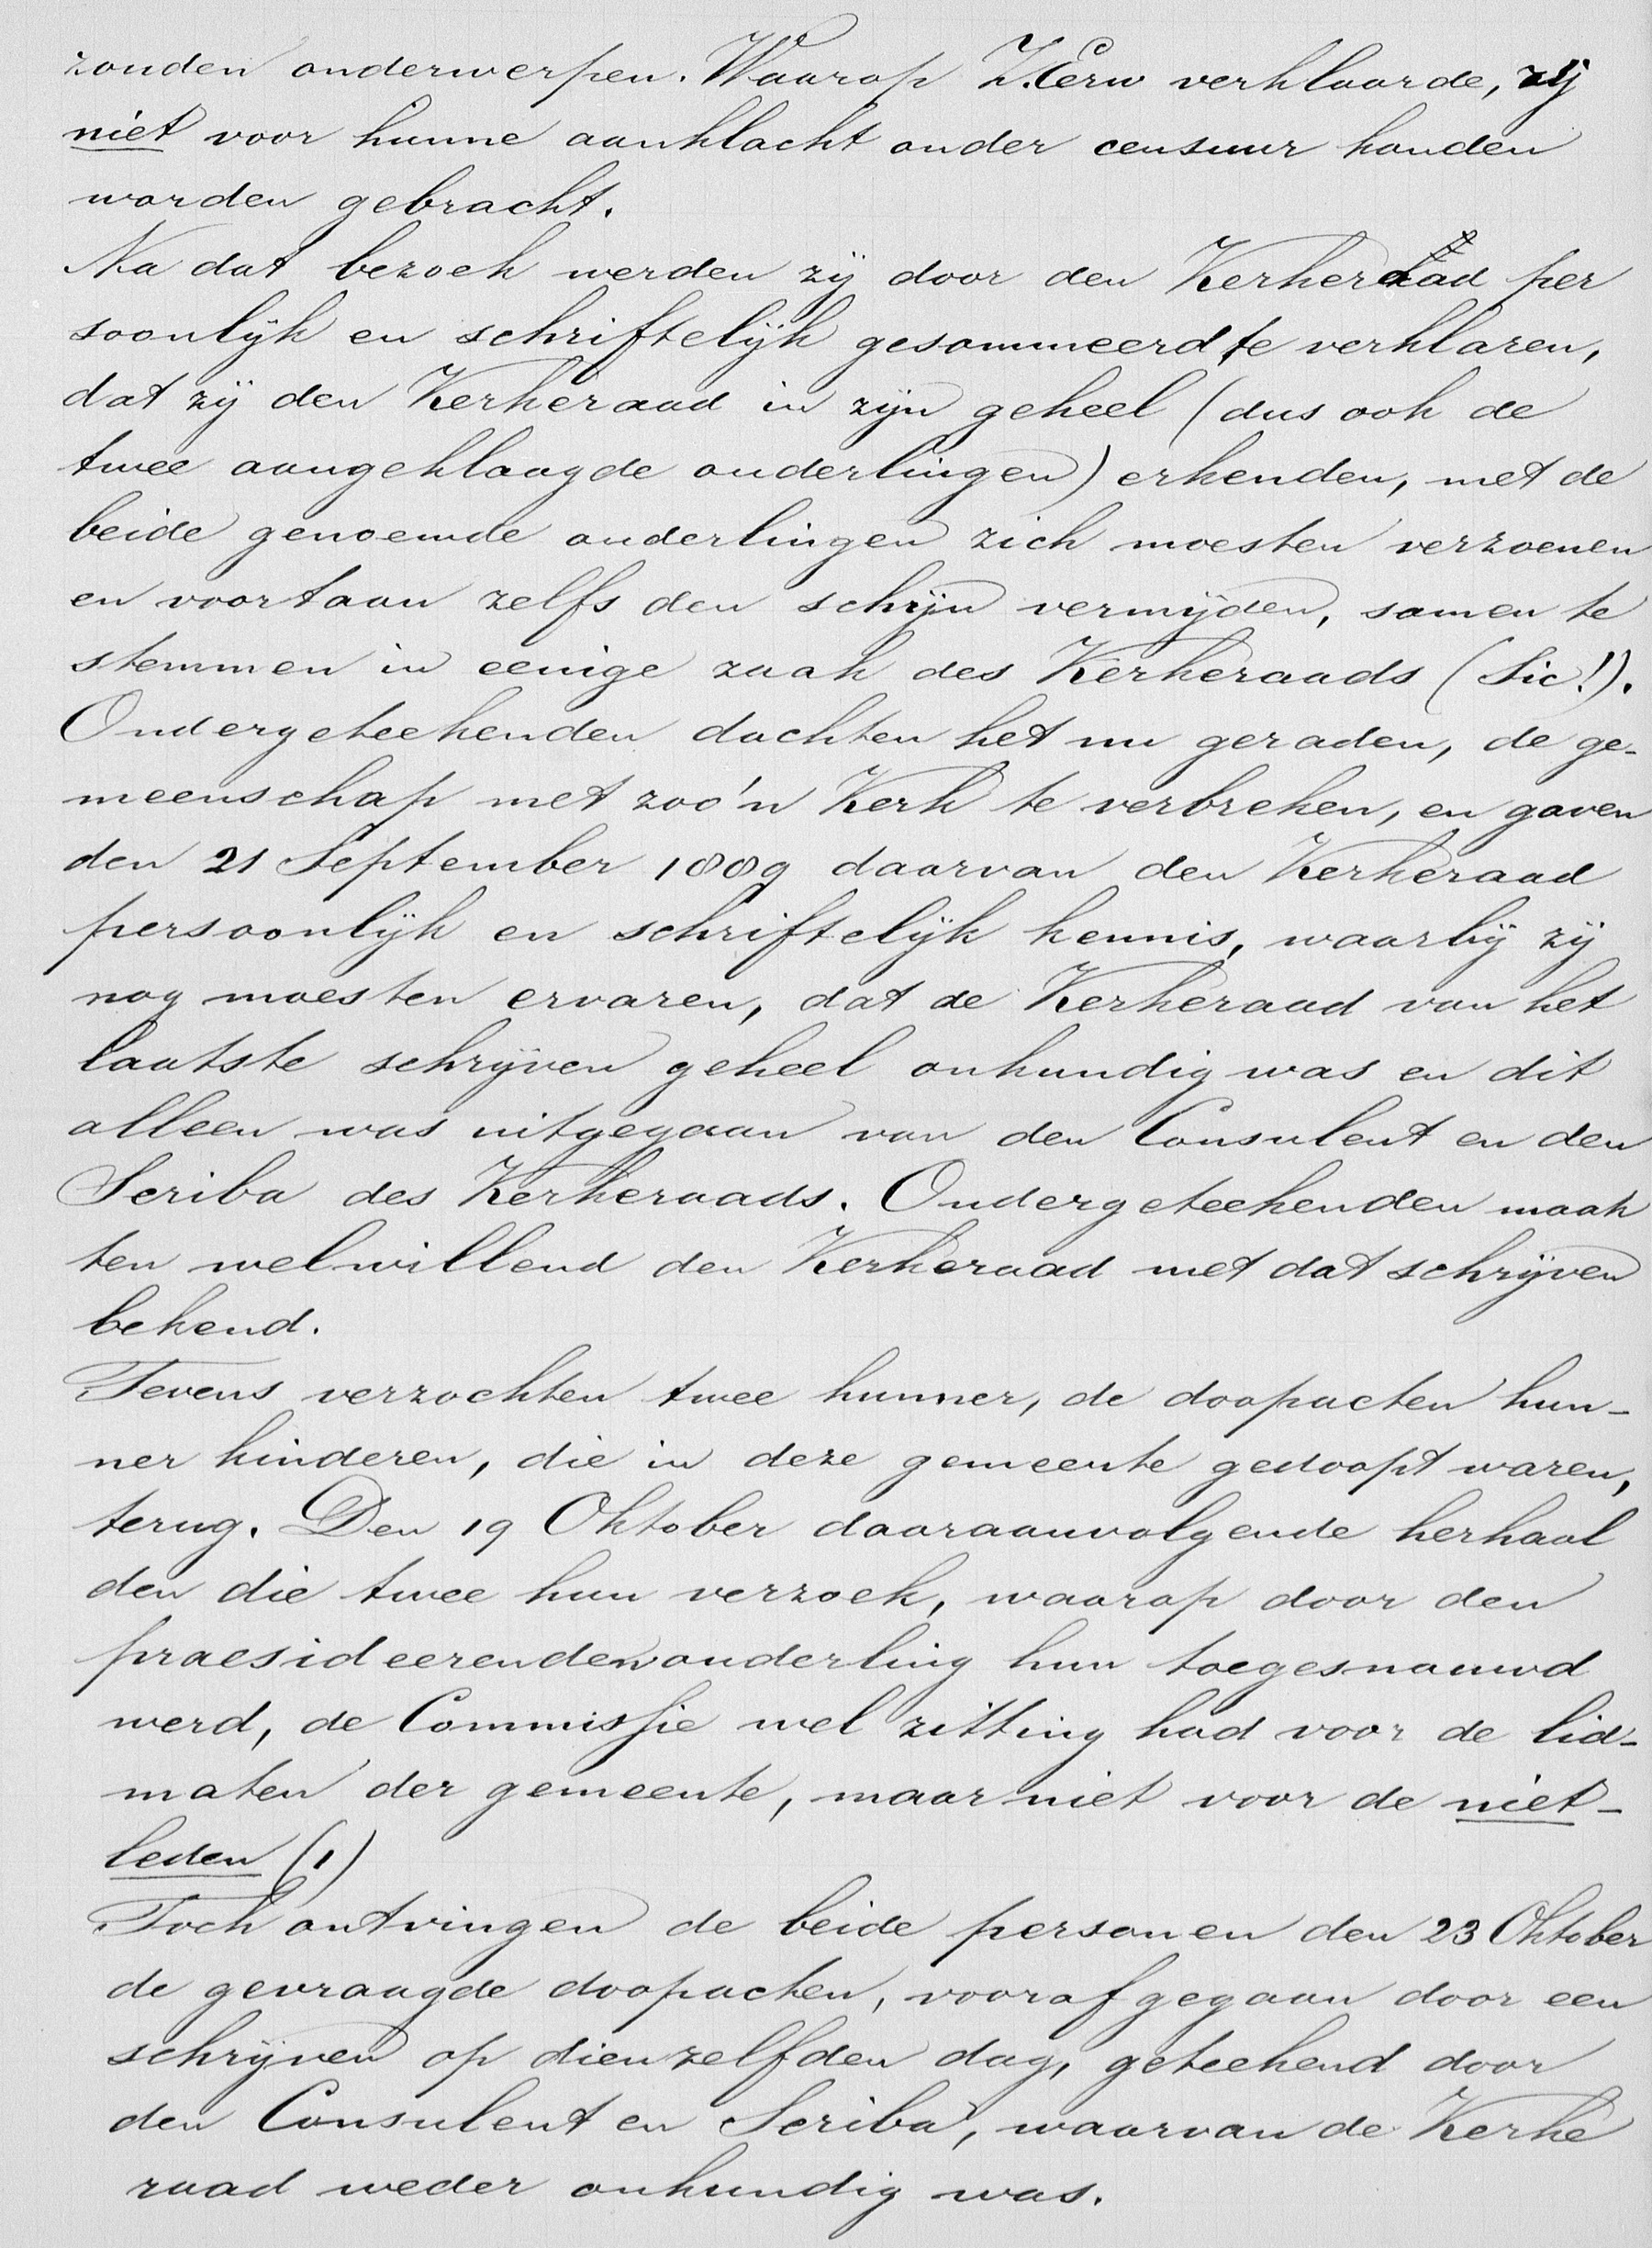 zouden onderwerpen. Waarop Z.Eerw verklaarde, zij
niet voor hunne aanklacht onder censuur konden
worden gebracht.
Na dat bezoek werden zij door den Kerkeraad per
soonlijk en schriftelijk gesommeerd, te verklaren,
dat zij den Kerkeraad in zijn geheel (dus ook de
twee aangeklaagde ouderlingen) erkenden, met de
beide genoemde ouderlingen zich moesten verzoenen
en voortaan zelfs den schijn vermijden, samen te
stemmen in eenige zaak des Kerkeraads (Sic!).
Ondergeteekenden dachten het nu geraden, de ge-
meenschap met zoo'n Kerk te verbreken, en gaven
den 21 September 1889 daarvan den Kerkeraad
persoonlijk en schriftelijk kennis, waarbij zij
nog moesten ervaren, dat de Kerkeraad van het
laatste schrijven geheel onkundig was en dit
alleen was uitgegaan van den Consulent en den
Scriba des Kerkeraads. Ondergeteekenden maak
ten welwillend den Kerkeraad met dat schrijven
bekend.
Tevens verzochten twee hunner, de doopacten hun-
ner kinderen, die in deze gemeente gedoopt waren,
terug. Den 19 Oktober daaraanvolgende herhaal
den die twee hun verzoek, waarop door den
praesideerenden ouderling hun toegesnauwd
werd, de Commissie wel zitting had voor de lid-
maten der gemeente, maar niet voor de niet-
leden (!)
Toch ontvingen de beide personen den 23 Oktober
de gevraagde doopacten, voorafgegaan door een
schrijven op dienzelfden dag, geteekend door
den Consulent en Scriba, waarvan de Kerke
raad weder onkundig was.